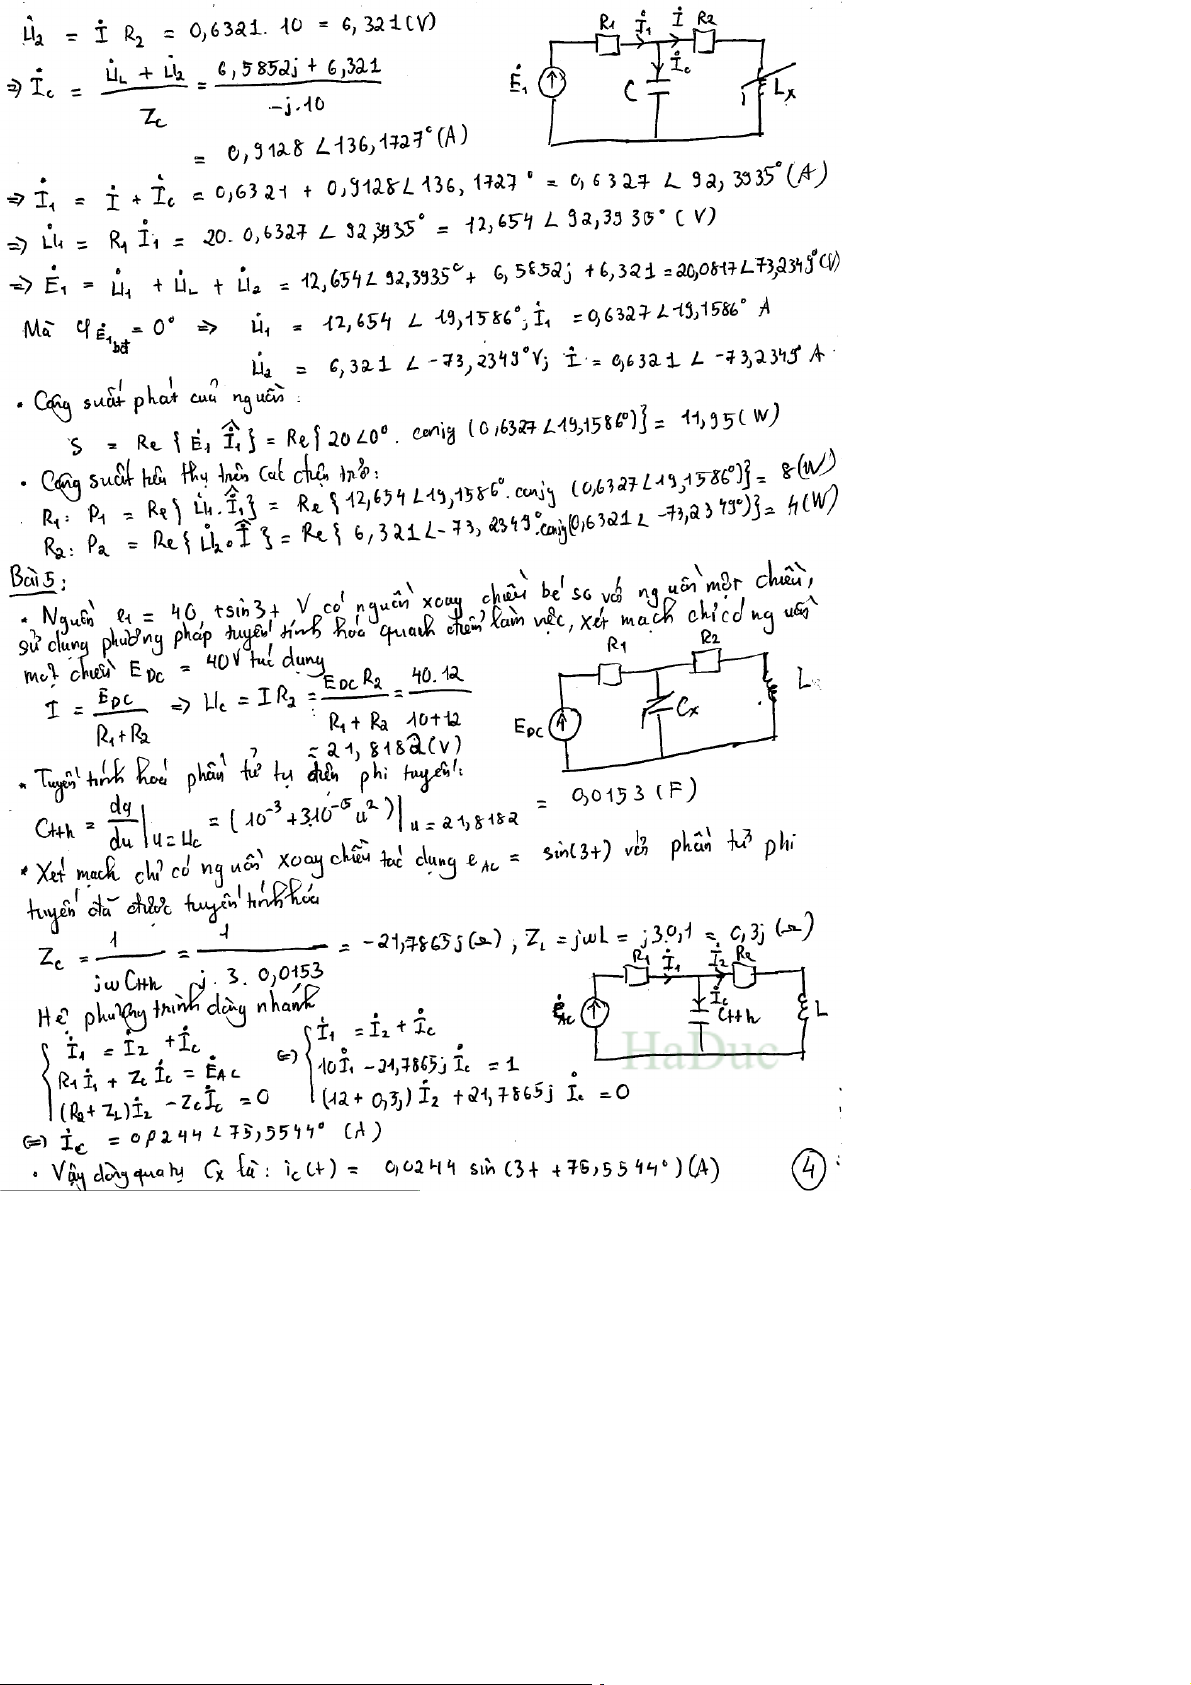 U̇₂ = İ R₂ = 0,6321. 10 = 6,321(V)
⇒ İc = (U̇L + U̇₂)/Zc = (6,5852j + 6,321)/(-j.10)
= 0,9128 ∠136,1727° (A)
⇒ İ₁ = İ + İc = 0,6321 + 0,9128∠136,1727° = 0,6327 ∠ 92,3935° (A)
⇒ U̇₁ = R₁ İ₁ = 20. 0,6327 ∠ 92,3935° = 12,654 ∠ 92,3935° (V)
⇒ Ė₁ = U̇₁ + U̇L + U̇₂ = 12,654∠92,3935° + 6,5852j + 6,321 = 20,0817∠73,2349°(V)
Mà φĖ₁bđ = 0° ⇒ U̇₁ = 12,654 ∠ 19,1586°; İ₁ = 0,6327∠19,1586° A
U̇₂ = 6,321 ∠ -73,2349° V; İ = 0,6321 ∠ -73,2349° A
R₁ İ₁ İ R₂
İc
Ė₁ C Lx
• Công suất phát của nguồn:
S = Re { Ė₁ Î₁ } = Re{ 20∠0° . conjg (0,6327∠19,1586°)} = 11,95(W)
• Công suất tiêu thụ trên các điện trở:
R₁: P₁ = Re{ U̇₁.Î₁ } = Re{ 12,654∠19,1586° . conjg (0,6327∠19,1586°)} = 8(W)
R₂: P₂ = Re{ U̇₂.Î } = Re{ 6,321∠-73,2349° . conjg(0,6321∠ -73,2349°)} = 4(W)
Bài 5:
• Nguồn e₁ = 40 + sin3t V có nguồn xoay chiều bé so với nguồn một chiều,
sử dụng phương pháp tuyến tính hoá quanh điểm làm việc, xét mạch chỉ có nguồn
một chiều EDC = 40V tác dụng
I = EDC/(R₁+R₂) ⇒ Uc = I R₂ = EDC R₂/(R₁ + R₂) = 40.12/(10+12)
= 21,8182(V)
R₁ R₂
EDC Cx L
• Tuyến tính hoá phần tử tụ điện phi tuyến:
Ctth = dq/du |u=Uc = (10⁻³ + 3.10⁻⁵ u²)|u=21,8182 = 0,0153 (F)
* Xét mạch chỉ có nguồn xoay chiều tác dụng eAC = sin(3t) với phần tử phi
tuyến đã được tuyến tính hóa
Zc = 1/(jω Ctth) = 1/(j. 3. 0,0153) = -21,7865j(Ω), ZL = jωL = j3.0,1 = 0,3j (Ω)
R₁ İ₁ İ₂ R₂
İc
ĖAC Ctth L
Hệ phương trình dòng nhánh
{ İ₁ = İ₂ + İc ⇔ { İ₁ = İ₂ + İc
R₁İ₁ + Zc İc = ĖAC 10İ₁ - 21,7865j İc = 1
(R₂ + ZL)İ₂ - Zc İc = 0 (12 + 0,3j) İ₂ + 21,7865j İc = 0
⇔ İc = 0,0244 ∠75,5544° (A)
• Vậy dòng qua tụ Cx là: ic(t) = 0,0244 sin (3t + 75,5544°)(A)
4
HaDuc